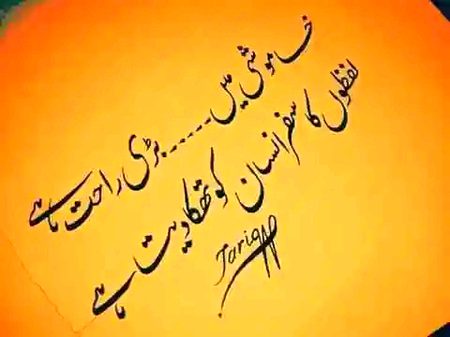 خاموشی میں ...... بڑی راحت ہے
لفظوں کا سفر انسان کو تھکا دیتا ہے
Tariq